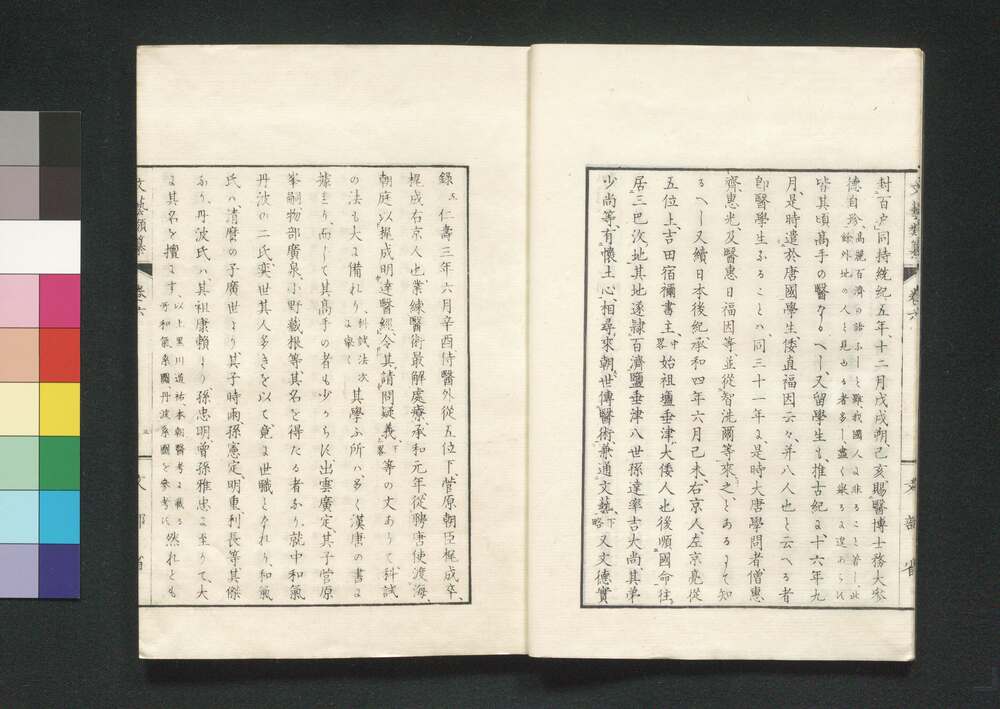 封百户、同持統紀五年、十二月戊戌朔、己亥賜醫博士務大參
德自珍、高麗百濟の諸ふしと雖我國人よ非ること著し此
餘外地の人と見ゆる者多し盡く擧るよ遑あらバ
皆其頃髙手の醫なるべし、又留學生も、推古紀よ十六年九
月、是時遣於唐國學生、倭直福因云々、并八人也と云へる者
卽醫學生ふることハ、同三十一年よ、是時大唐學問者僧惠
齊惠光、及醫惠日福因等並從智洗爾等來之、とあるにて知
るべし又續日本後紀、承和四年六月己未右京人、左京亮從
五位上吉田宿禰書主、中畧始祖壇垂津、大倭人也後順國命往
居三巴汶地、其地遂隷百濟、鹽垂津八世孫、達率吉大尚、其弟
少尚等、有懷土心、相尋來朝世傳醫術兼通文藝、下略又文德實
文藝類纂
卷六
文部省
錄よ仁壽三年六月辛酉侍醫外從五位下、菅原朝臣梶成卒、
梶成右京人也、業練醫術最解處療、承和元年從聘唐使渡海、
朝庭以梶成明達醫經、令其請問疑義、下畧等の文ありて科試
の法も大よ備れり、科試法次よ載く其學ふ所ハ多く漢唐の書よ
據まり、而して其髙手の者も少からに出雲廣定、其子菅原
峯嗣物部廣泉、小野藏根等其名を得たる者ふり、就中和氣
丹波の二氏奕世其人多きを以て竟よ世職となれり、和氣
氏ハ、淸麿の子廣世より、其子時雨、孫憲定、明重、利長等、其傑
ふり、丹波氏ハ、其祖康賴より、孫忠明、曾孫雅忠よ至りて、大
よ其名を擅よす、以上黑川道祐本朝醫考よ載る所和氣系圖丹波系圖を參考に然れとも
文藝類纂
卷六
三
文部省